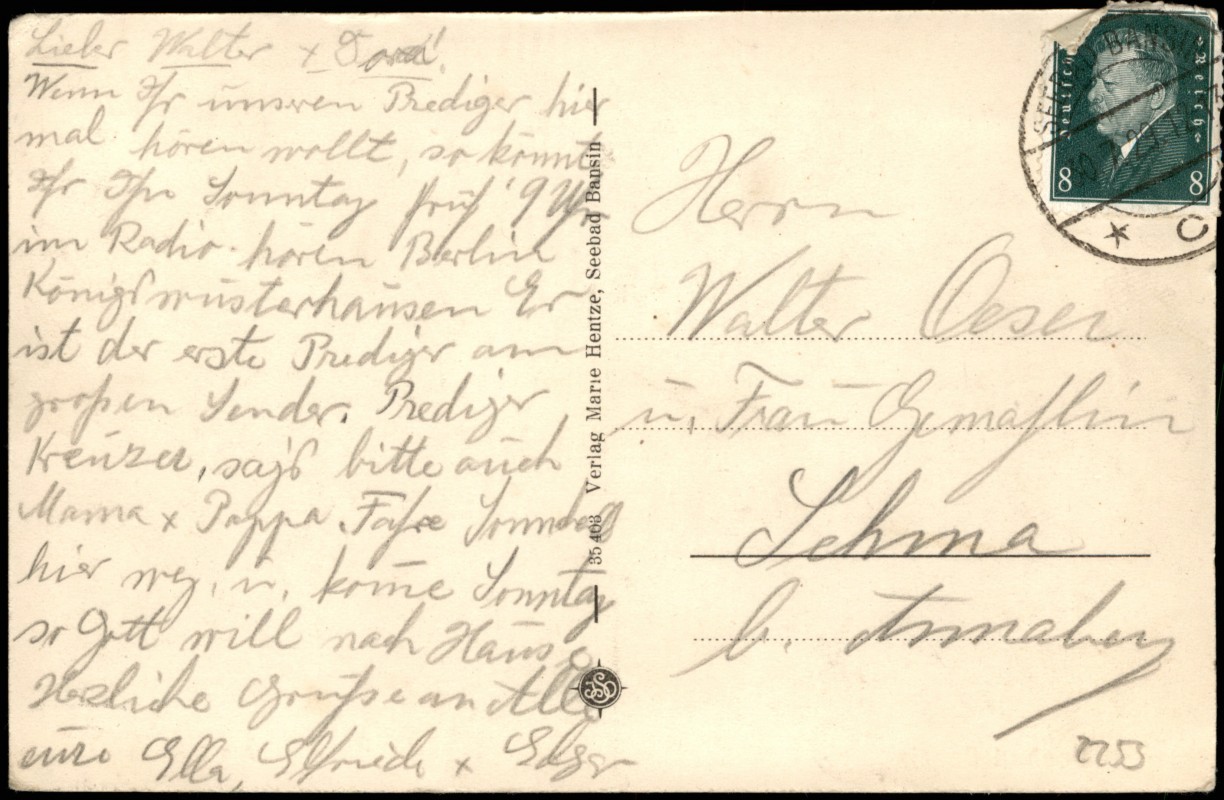 Lieber Walter + Dora!
Wenn Ihr unseren Prediger hier
mal hören wollt, so könnt
Ihr Ihn Sonntag früh 9 Uhr
im Radio hören Berlin
Königswusterhausen Er
ist der erste Prediger am
großen Sender. Prediger
Kreuzer, sagt bitte auch
Mama + Pappa. Fahre Sonnabend
hier weg, u. kome Sonntag
so Gott will nach Hause
Herzliche Grüße an Alle
eure Ella, Elfriede + Edgar
35403 Verlag Marie Hentze, Seebad Bansin
Deutsches Reich
8 8
SEEBAD BANSIN
Herrn
Walter Oeser
u. Frau Gemahlin
Sehma
b. Annaberg
2253